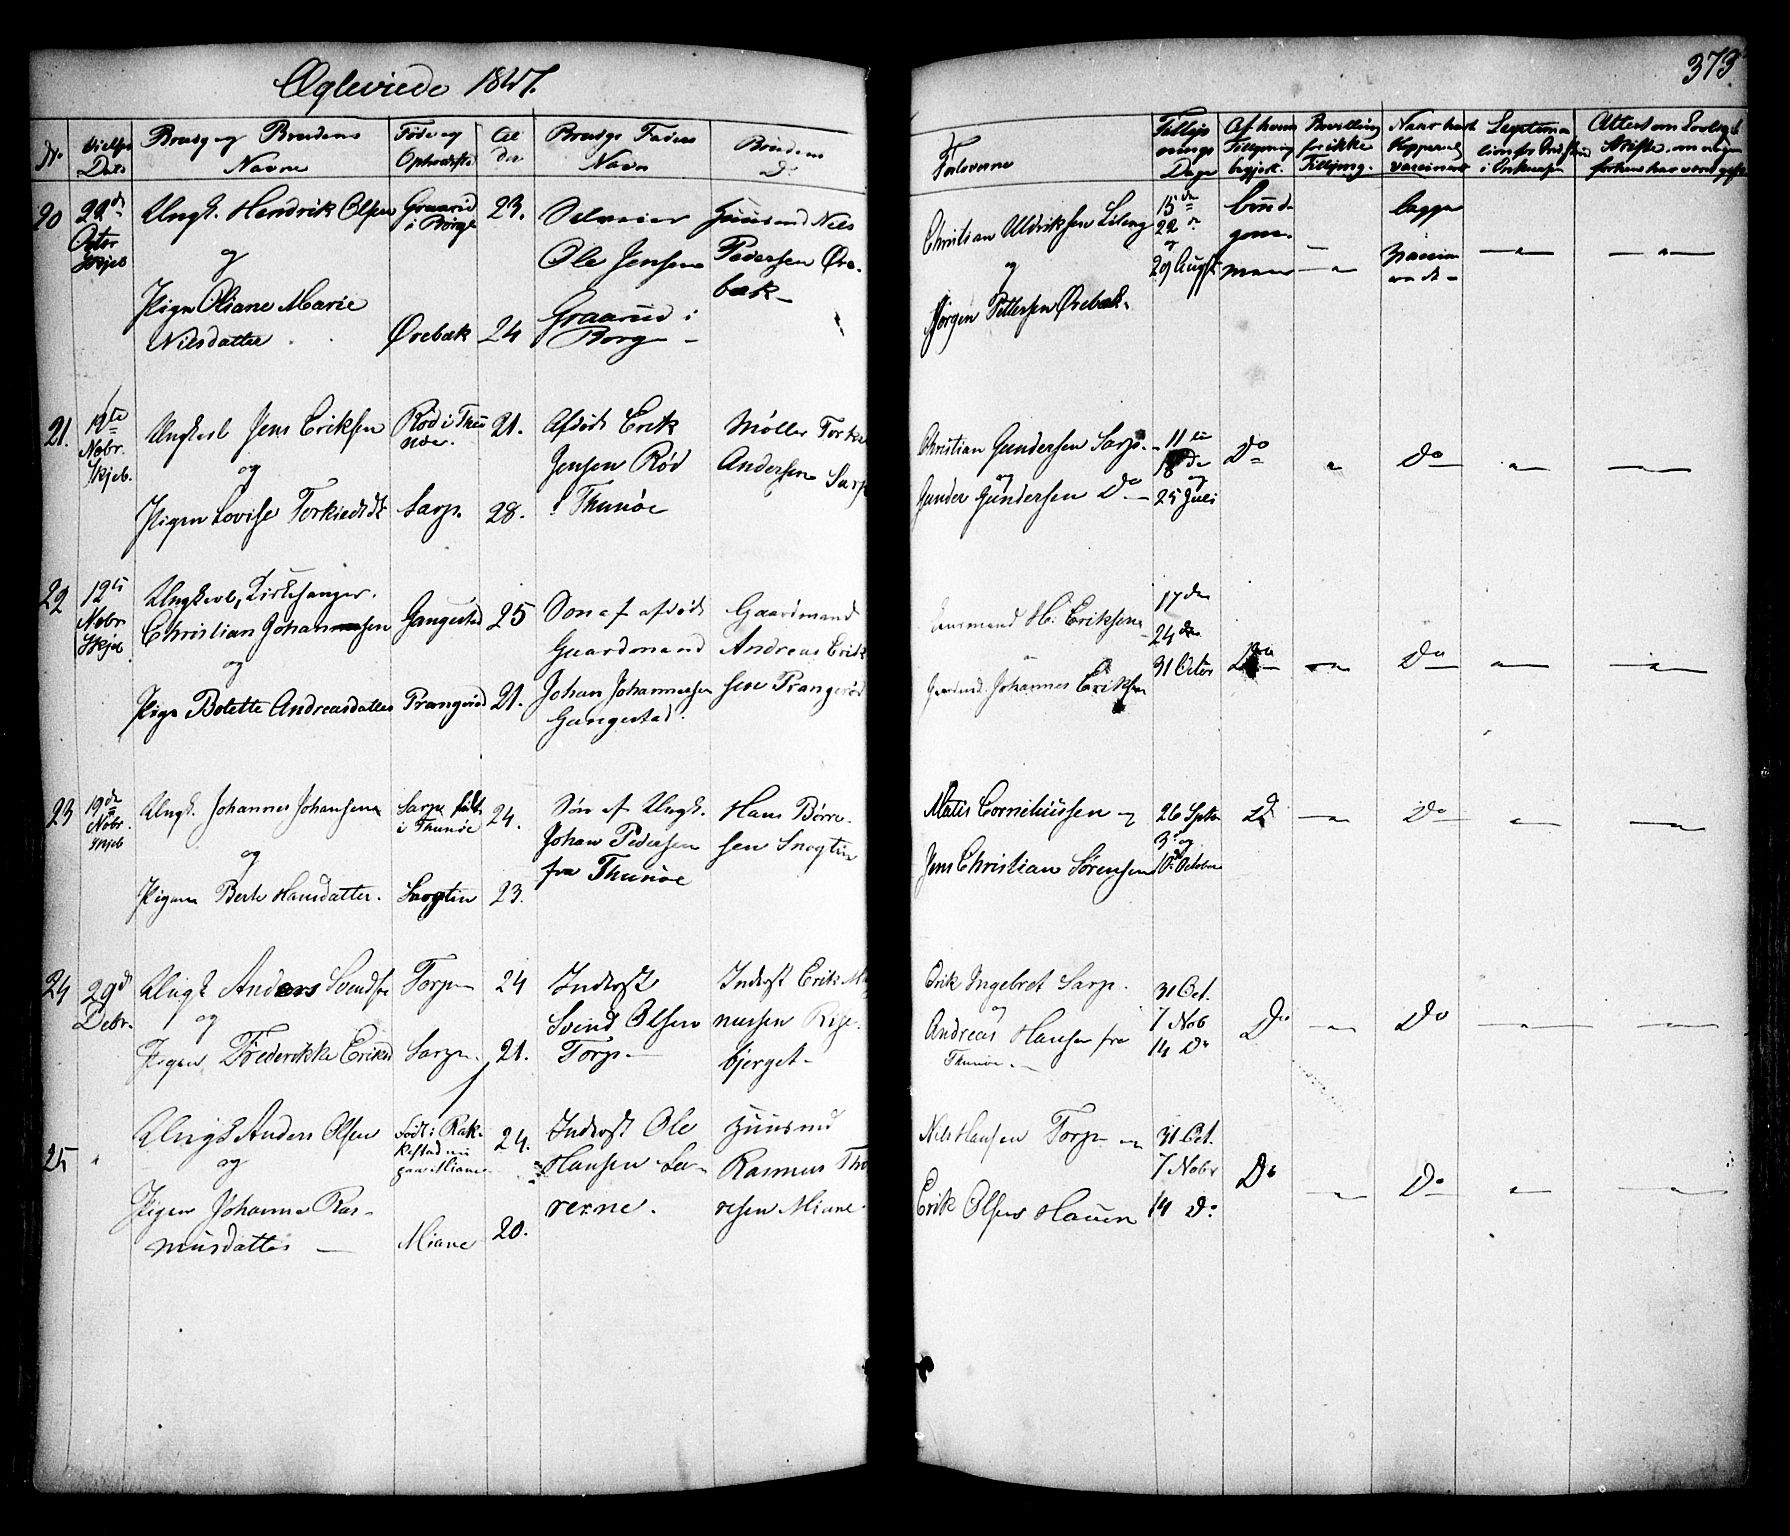 Ægteviede 1847.
373
No
Vielses Dato
Brudg og Brudens Navne
Føde og Opholdssted
Alder
Brudgs Faders Navn
Brudens Do
Forloverne
Tillysnings Dage
Af hvem Tillysning begjert.
Bevilling for ikke Tillysning.
Naar havt Kopper el vaccineret
Attest om Lovligt Skifte, om nogen forhen har været gift
20
22de Octbr Skjeb
Ungk. Hendrik Olsen
og
Pigen Oliane Marie
Nilsdatter
Graarud
i Borge
Ørebæk
23.
24
Selveier
Ole Jensen
Graarud i
Borge
Huusmd Nils
Pedersen Øre-
bæk
Christian Uldriksen
og
Jørgen Pettersen Ørebæk.
15de
22de
og
29 August
Brud-
gom-
men
begge
vaccine-
rede
21.
12te
Nobr.
Skjeb.
Ungkarl Jens Eriksen
og
Pigen Lovise Torkildsdt
Rød i Thu
nøe.
Sarp.
21.
28.
Afdøde Erik
Jensen Rød
i Thunøe
Møller Torki
Andersen Sarp
Christian Gundersen Sarp.
og
Gunder Gundersen Do
11te
18de
og
25 Juli
Do
Do
22
12te
Nobr
Skjeb
Ungkarl, Kirkesanger.
Christian Johannesen
og
Pige Botette Andreasdatter
Gangestad
Prangerød
25
21.
Søn af afdøde
Gaardmand
Johan Johannesen
Gangestad.
Gaardmand
Andreas Erik
sen Prangerød
H. Eriksen
Gaardmd. Johannes Eriksen
17de
24de
31 Octbr
Do
Do
23
19de
Nobr.
Skjeb
Ungk. Johannes Johansen
og
Pigen Berte Hansdatter.
Sarp født
i Thunøe
24.
23.
Søn af Ungk.
Johan Pedersen
fra Thunøe
Hans Børre-
sen
Matis Corneliussen og
Jens Christian Sørensen
26 Septbr
3de og
10de October
Do
Do
24
29de
Debr.
Ungk Anders Svendse
og
Pigen Frederikke Eriksd
Torp
Sarp.
24
21.
Inderst
Svend Olsen
Torp
Inderst Erik Mag
nussen Rise-
bjerget
Erik Ingebret Sarp.
og
Andreas Hansen fra
Thunøe.
31 Oct.
7 Nob
14 Do
Do
Do
25
Ungk Anders Olsen
og
Pigen Johanne Ras-
musdatter
Født i Rak-
kestad nu
paa Miane
Miane
24.
20.
Inderst Ole
Hansen
Huusmd
Rasmus Tho
resen Miane
Nils Hansen Torp og
Erik Olsen Hauen
31 Oct.
7 Nobr
14 Do
Do
Do